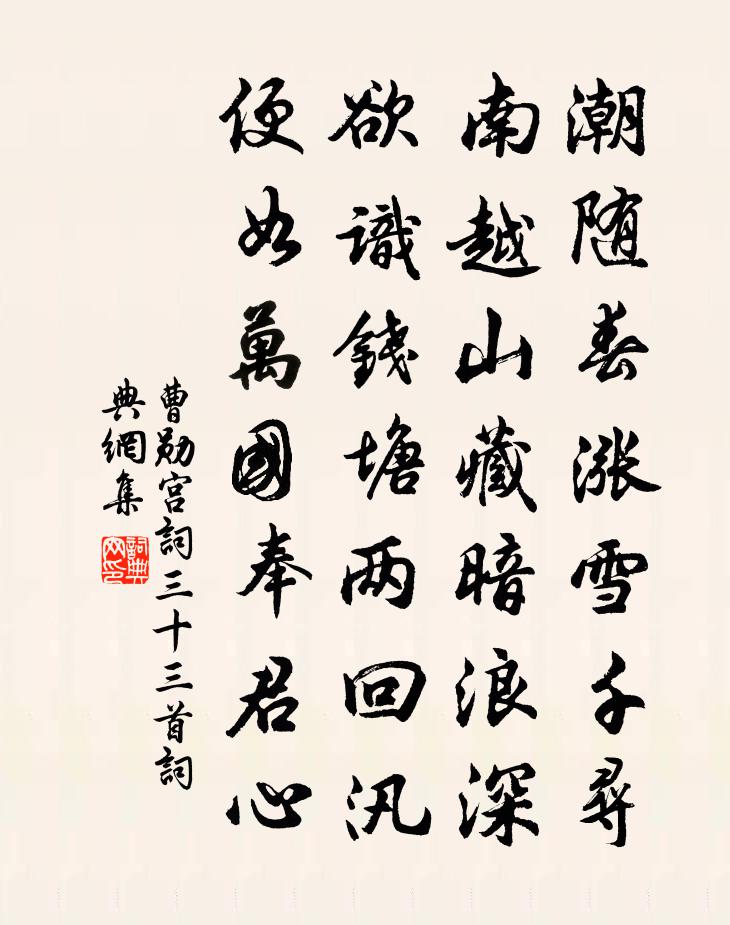 潮随春漲雪千尋
南越山藏暗浪深
欲識錢塘兩回汛
便如萬國奉君心
曹勛宮詞三十三首詞
典網集
詞典
网印